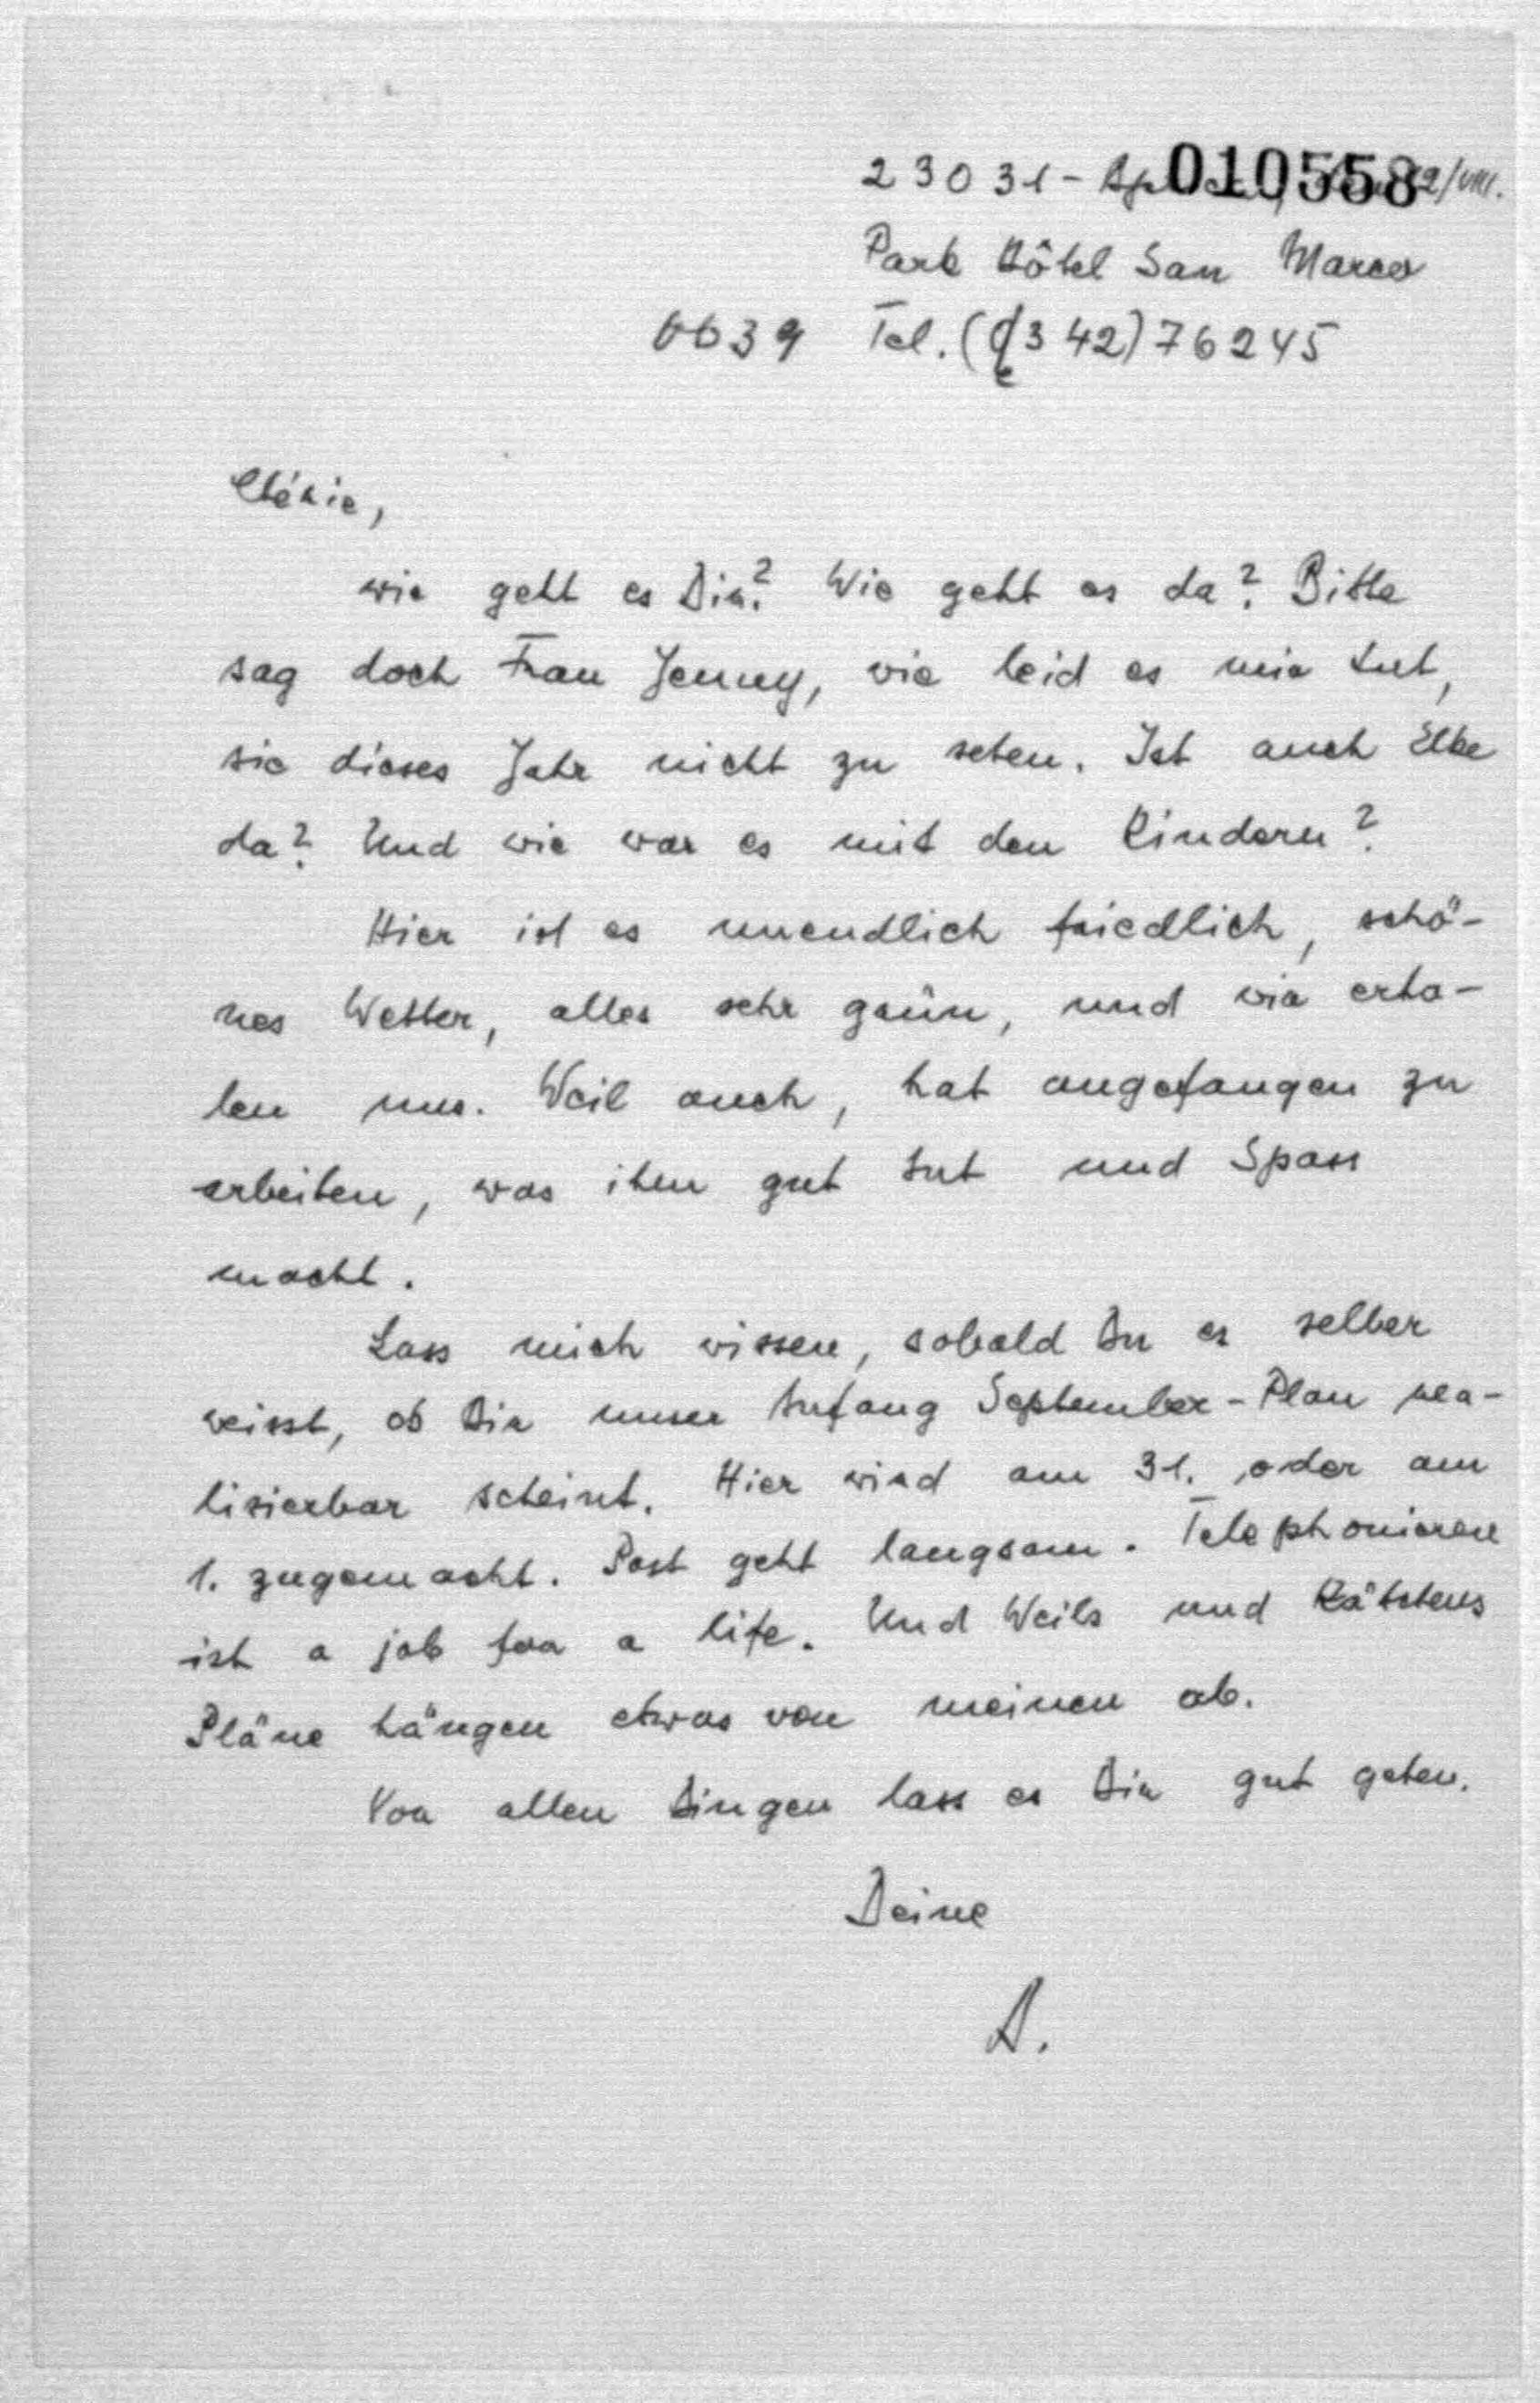 010558
23031 - Aprica, 12/VIII.
Park Hôtel San Marco
0039 Tel. (0342) 76245
Chérie,
wie geht es Dir? Wie geht es da? Bitte
sag doch Frau Jenny, wie leid es mir tut,
sie dieses Jahr nicht zu sehen. Ist auch Elke
da? Und wie war es mit den Kindern?
Hier ist es unendlich friedlich, schö-
nes Wetter, alles sehr grün, und wir erho-
len uns. Weil auch, hat angefangen zu
arbeiten, was ihm gut tut und Spass
macht.
Lass mich wissen, sobald Du es selber
weisst, ob Dir unser Anfang September-Plan rea-
lisierbar scheint. Hier wird am 31. oder am
1. zugemacht. Post geht langsam. Telephonieren
ist a job for a life. Und Weils und Kätchens
Pläne hängen etwas von meinen ab.
Vor allen Dingen lass es Dir gut gehen.
Deine
A.